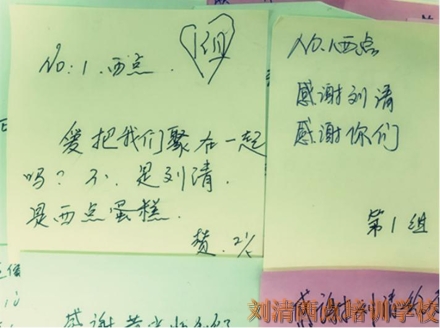 No:1.西点.
1组
爱把我们聚在一起
吗？不.是刘清.
是西点蛋糕.
No.1西点
感谢刘清
感谢你们
第1组
感谢
感谢刘清给
刘清西点培训学校